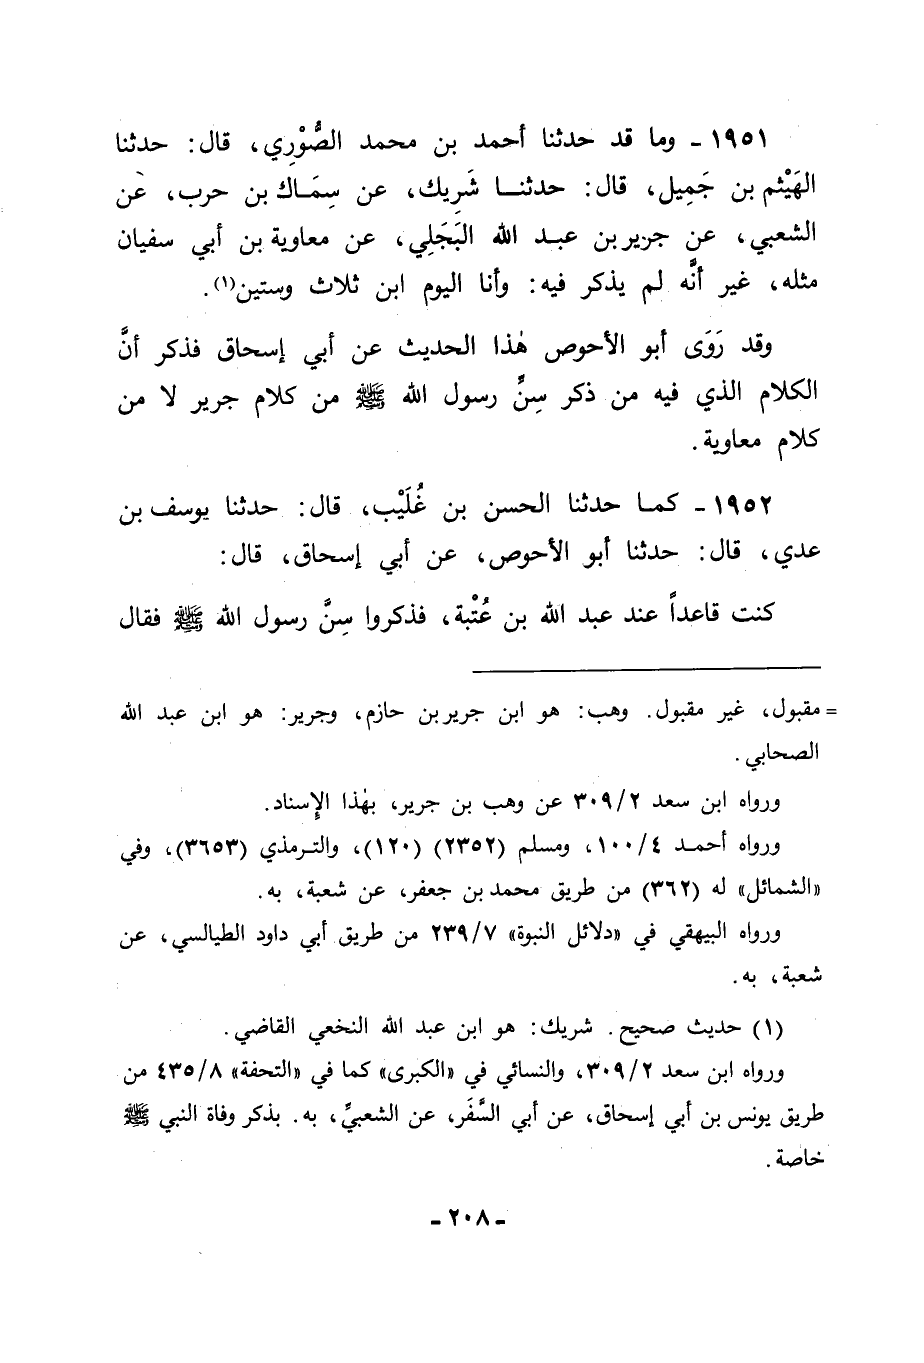 ١٩٥١ - وما قد حدثنا أحمد بن محمد الصُّوْرِي، قال: حدثنا
الهَيْثم بن جَمِيل، قال: حدثنا شَرِيك، عن سِمَاك بن حرب، عن
الشعبي، عن جرير بن عبد الله البَجَلِي، عن معاوية بن أبي سفيان
مثله، غير أنَّه لم يذكر فيه: وأنا اليوم ابن ثلاث وستين(١).
وقد رَوَى أبو الأحوص هٰذا الحديث عن أبي إسحاق فذكر أنَّ
الكلام الذي فيه من ذكر سِنِّ رسول الله ﷺ من كلام جرير لا من
كلام معاوية.
١٩٥٢ - كما حدثنا الحسن بن غُلَيْب، قال: حدثنا يوسف بن
عدي، قال: حدثنا أبو الأحوص، عن أبي إسحاق، قال:
كنت قاعداً عند عبد الله بن عُتْبة، فذكروا سِنَّ رسول الله ﷺ فقال
= مقبول، غير مقبول. وهب: هو ابن جرير بن حازم، وجرير: هو ابن عبد الله
الصحابي.
ورواه ابن سعد ٣٠٩/٢ عن وهب بن جرير، بهٰذا الإِسناد.
ورواه أحمد ١٠٠/٤، ومسلم (٢٣٥٢) (١٢٠)، والترمذي (٣٦٥٣)، وفي
«الشمائل» له (٣٦٢) من طريق محمد بن جعفر، عن شعبة، به.
ورواه البيهقي في «دلائل النبوة» ٢٣٩/٧ من طريق أبي داود الطيالسي، عن
شعبة، به.
(١) حديث صحيح. شريك: هو ابن عبد الله النخعي القاضي.
ورواه ابن سعد ٣٠٩/٢، والنسائي في «الكبرى» كما في «التحفة» ٤٣٥/٨ من
طريق يونس بن أبي إسحاق، عن أبي السَّفَر، عن الشعبيِّ، به. بذكر وفاة النبي ﷺ
خاصة.
- ٢٠٨ -